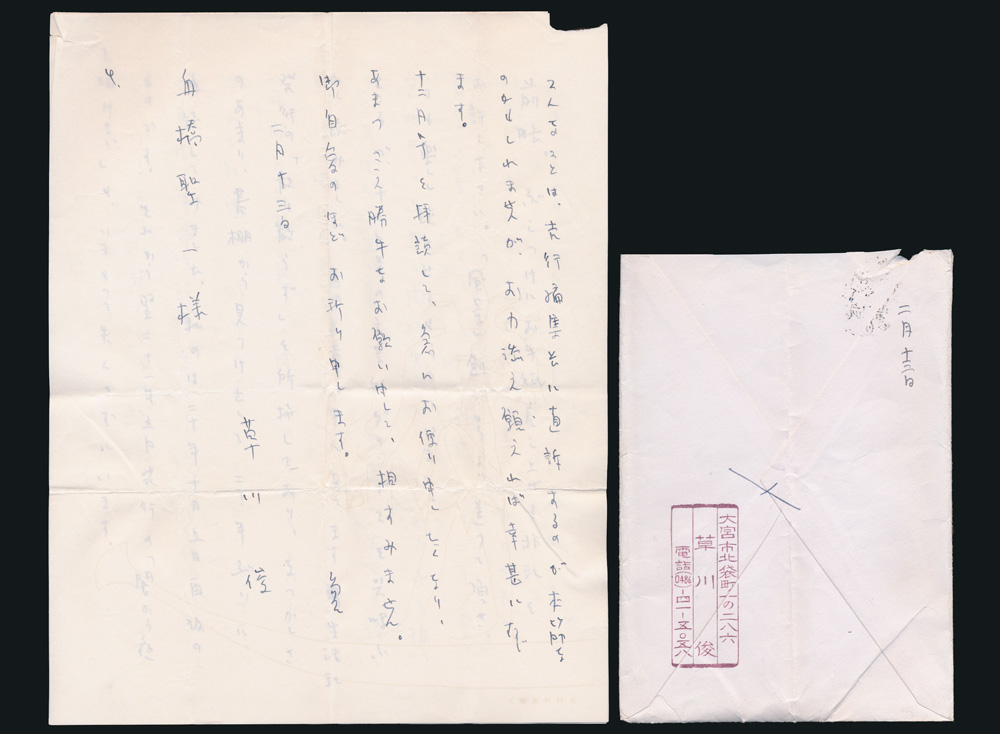 こんなことは、吉行編集長に直訴するのが本筋な
のかもしれませんが、お力添え願えれば幸甚に存じ
ます。
十二月号を拝読して、急にお便り申したくなり、
あまつさえ勝手なお願い申して、相すみません。
御自愛のほどお祈り申します。
二月十三日
草川 俊
舟橋聖一様
4.
二月十三日
大宮市北袋町一の二八六
草川 俊
電話(0486)-四一-五〇五八